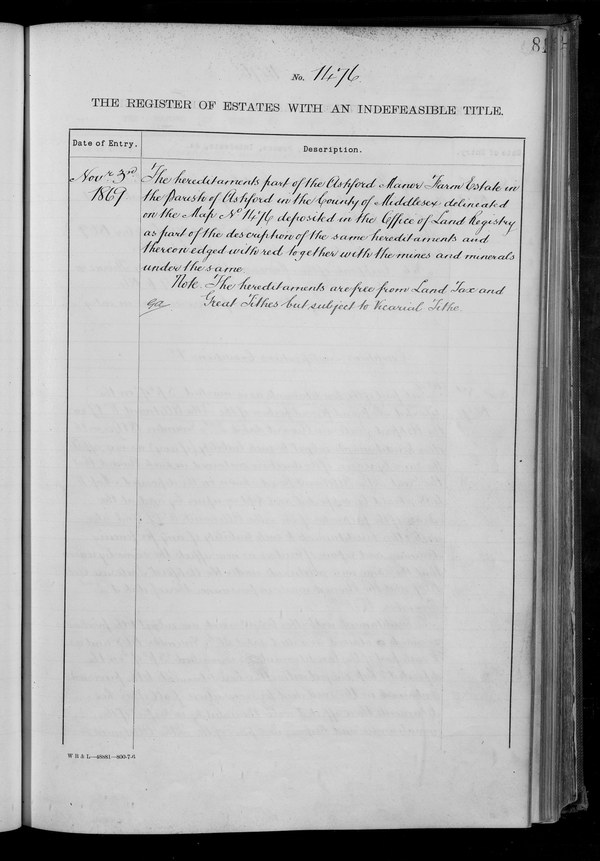 81
No. 1476
THE REGISTER OF ESTATES WITH AN INDEFEASIBLE TITLE.
Date of Entry.
Description.
Novr. 3rd
1869
The hereditaments part of the Ashford Manor Farm Estate in
the Parish of Ashford in the County of Middlesex delineated
on the Map No 1476 deposited in the Office of Land Registry
as part of the description of the same hereditaments and
thereon edged with red together with the mines and minerals
under the same
Note. The hereditaments are free from Land Tax and
Great Tithes but subject to Vicarial Tithe.
W B & L—48881—800-7-6